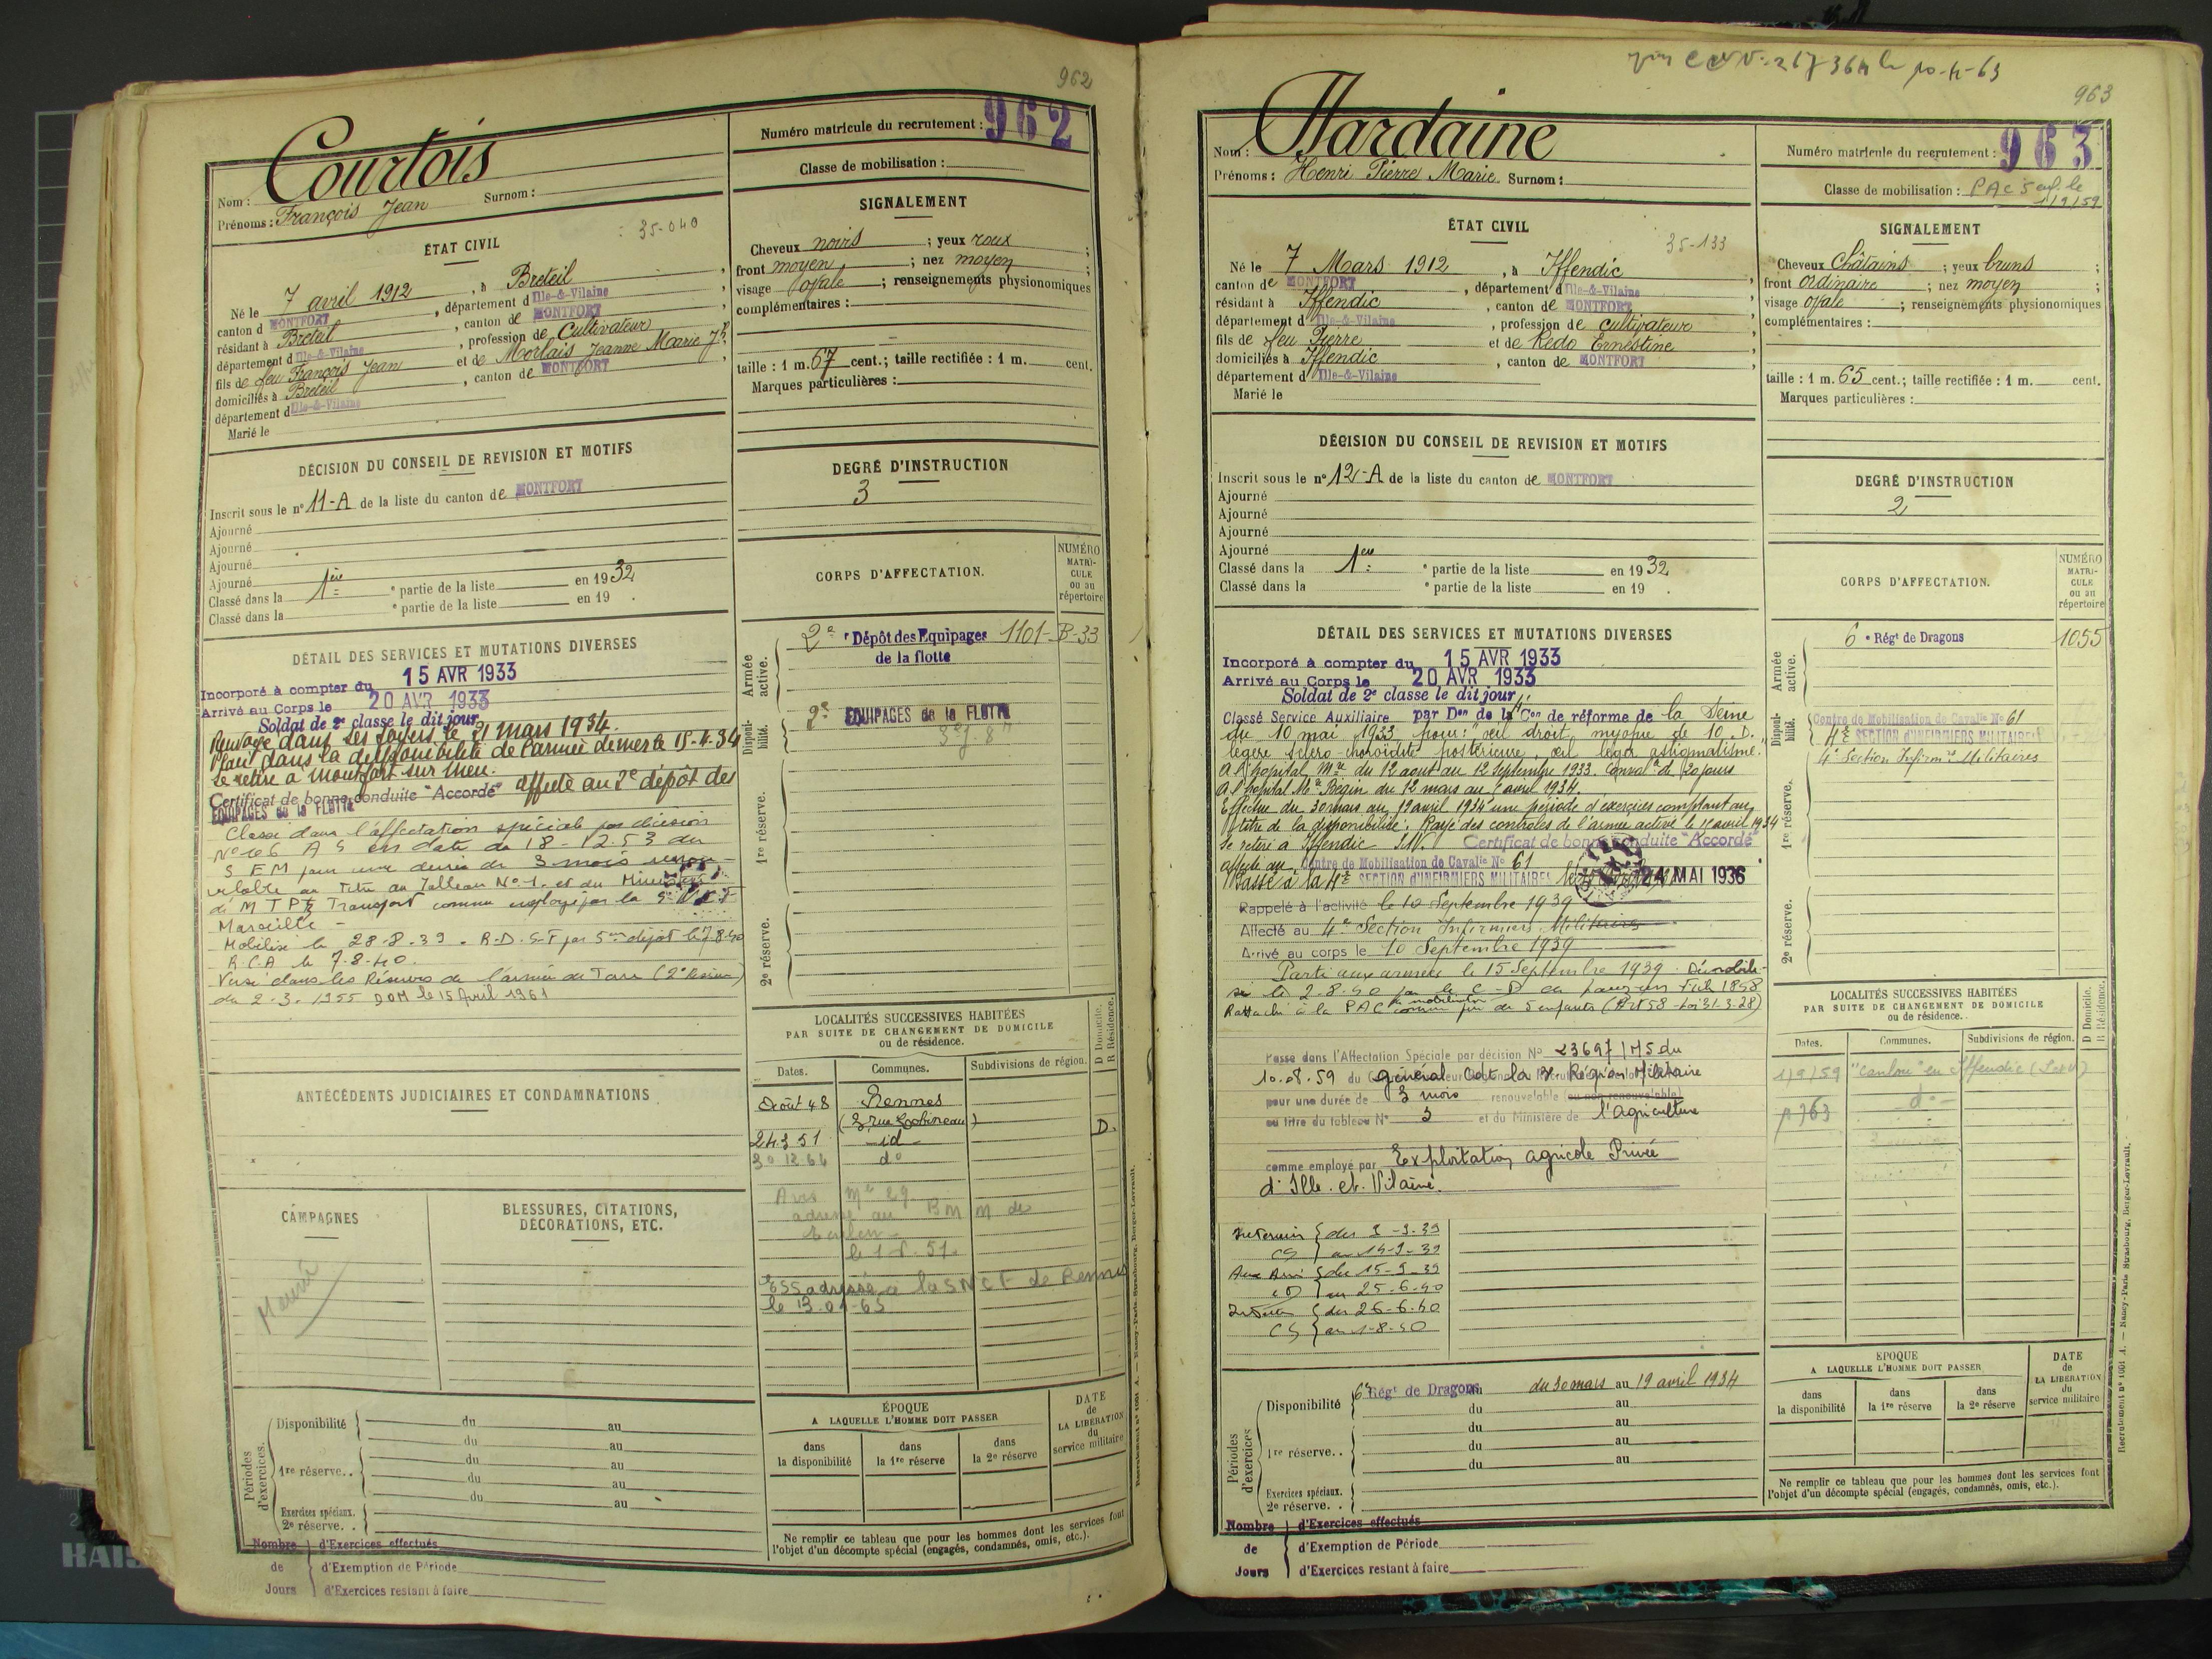 962
Courtois
Nom :
Prénoms : François Jean Surnom :
Numéro matricule du recrutement : 962
Classe de mobilisation :
ÉTAT CIVIL
35-040
Né le 7 avril 1912, à Breteil
canton d MONTFORT, département d Ille-&-Vilaine
résidant à Breteil, canton de MONTFORT
département d Ille-&-Vilaine, profession de Cultivateur
fils de feu François Jean et de Morlais Jeanne Marie Jh
domiciliés à Breteil, canton de MONTFORT
département d Ille-&-Vilaine
Marié le
SIGNALEMENT
Cheveux noirs ; yeux roux ;
front moyen ; nez moyen ;
visage ovale ; renseignements physionomiques
complémentaires :
taille : 1 m. 67 cent. ; taille rectifiée : 1 m. cent.
Marques particulières :
DÉCISION DU CONSEIL DE REVISION ET MOTIFS
Inscrit sous le n° 11-A de la liste du canton de MONTFORT
Ajourné
Ajourné
Ajourné
Ajourné
Classé dans la 1ère e partie de la liste en 1932
Classé dans la e partie de la liste en 19 .
DEGRÉ D'INSTRUCTION
3
DÉTAIL DES SERVICES ET MUTATIONS DIVERSES
Incorporé à compter du 15 AVR 1933
Arrivé au Corps le 20 AVR 1933
Soldat de 2e classe le dit jour
Renvoyé dans ses foyers le 31 mars 1934.
Placé dans la disponibilité de l'armée de mer le 15-4-34
Se retire à Montfort sur Meu.
Certificat de bonne conduite "Accordé" affecté au 2e dépôt des
EQUIPAGES de la FLOTTE
Classé dans l'affectation spéciale par décision
N° 106 A S en date du 18-12.53 du
S E M pour une durée de 3 mois
au Titre du Tableau N°1. et du
de M T P Transport comme employé par la
Marseille -
Mobilisé le 28-8-39. R.D.S.F par 5me dépôt le 7.8.40
R.C.A le 7-8-40.
Versé dans les Réserves de l'armée de Terre (2e Réserve)
du 2-3-1955 DOM le 15 Avril 1961
CORPS D'AFFECTATION.
NUMÉRO MATRI- CULE ou au répertoire
Armée active.
2e Dépôt des Equipages de la flotte 1101-B-33
Disponi- bilité.
2e EQUIPAGES de la FLOTTE
1re réserve.
2e réserve.
ANTÉCÉDENTS JUDICIAIRES ET CONDAMNATIONS
LOCALITÉS SUCCESSIVES HABITÉES
PAR SUITE DE CHANGEMENT DE DOMICILE
ou de résidence.
D Domicile. R Résidence.
Dates. Communes. Subdivisions de région.
Août 48 Rennes
(3 rue Lobineau)
24 3 51 id D.
30 12.64 d°
adressé au BM M de
Toulon
le 1-8-51.
ESS adressé a la SNCF de Rennes
le 13-01-65
CAMPAGNES
BLESSURES, CITATIONS,
DÉCORATIONS, ETC.
Périodes d'exercices.
Disponibilité du au
du au
1re réserve.. du au
du au
du au
Exercices spéciaux.
2e réserve. .
Nombre d'Exercices effectués
de d'Exemption de Période
Jours d'Exercices restant à faire
ÉPOQUE
A LAQUELLE L'HOMME DOIT PASSER
dans la disponibilité
dans la 1re réserve
dans la 2e réserve
DATE de LA LIBÉRATION du service militaire
Ne remplir ce tableau que pour les hommes dont les services font
l'objet d'un décompte spécial (engagés, condamnés, omis, etc.).
Recrutement n° 1001 A. — Nancy-Paris-Strasbourg, Berger-Levrault.
963
Hardaine
Nom :
Prénoms : Henri Pierre Marie Surnom :
Numéro matricule du recrutement : 963
Classe de mobilisation : PAC 5 enf. le
1/9/59
ÉTAT CIVIL
35-133
Né le 7 Mars 1912, à Iffendic
canton de MONTFORT, département d Ille-&-Vilaine
résidant à Iffendic, canton de MONTFORT
département d Ille-&-Vilaine, profession de Cultivateur
fils de feu Pierre et de Redo Ernestine
domiciliés à Iffendic, canton de MONTFORT
département d Ille-&-Vilaine
Marié le
SIGNALEMENT
Cheveux Châtains ; yeux bruns ;
front ordinaire ; nez moyen ;
visage ovale ; renseignements physionomiques
complémentaires :
taille : 1 m. 65 cent. ; taille rectifiée : 1 m. cent.
Marques particulières :
DÉCISION DU CONSEIL DE REVISION ET MOTIFS
Inscrit sous le n° 12-A de la liste du canton de MONTFORT
Ajourné
Ajourné
Ajourné
Ajourné
Classé dans la 1ere e partie de la liste en 1932
Classé dans la e partie de la liste en 19 .
DEGRÉ D'INSTRUCTION
2
DÉTAIL DES SERVICES ET MUTATIONS DIVERSES
Incorporé à compter du 15 AVR 1933
Arrivé au Corps le 20 AVR 1933
Soldat de 2e classe le dit jour
Classé Service Auxiliaire par Don de la 4e Con de réforme de la Seine
du 10 mai 1933 pour : "œil droit, myopie de 10 D.
légère scléro-choroïdite postérieure, œil léger astigmatisme."
A l'hôpital Mre du 12 août au 12 Septembre 1933. Convalce d. 20 jours
A l'hôpital Mre Bégin du 12 mars au 7 avril 1934.
Effectue du 30 mars au 19 avril 1934 une période d'exercices comptant au
titre de la disponibilité. Rayé des contrôles de l'armée active le 1e avril 1934
Se retire à Iffendic I.&V. Certificat de bonne conduite "Accordé"
affecté au Centre de Mobilisation de Cavalie N° 61
Passé à la 4e SECTION d'INFIRMIERS MILITAIRES 24 MAI 1936
Rappelé à l'activité le 10 Septembre 1939
Affecté au 4e Section Infirmiers Militaires
Arrivé au corps le 10 Septembre 1939
Parti aux armées le 15 Septembre 1939. Démobili-
sé le 2.8.40 par le C-D de Fich 1858
Rattaché à la PAC comme père de 5 enfants (Art 58 - Loi 31-3-28)
Passé dans l'Affectation Spéciale par décision N° 23697/MS du
10.08.59 du général Cdt la 3e Région Militaire
pour une durée de 3 mois renouvelable (ou non renouvelable)
au titre du tableau N° 3 et du Ministère de l'agriculture
comme employé par Exploitation agricole Privée
d'Ille-et-Vilaine.
CORPS D'AFFECTATION.
NUMÉRO MATRI- CULE ou au répertoire
Armée active.
6e Régt de Dragons 1055
Disponi- bilité.
Centre de Mobilisation de Cavalie N° 61
4e SECTION d'INFIRMIERS MILITAIRES
1re réserve.
4e Section Infirmrs Militaires
2e réserve.
LOCALITÉS SUCCESSIVES HABITÉES
PAR SUITE DE CHANGEMENT DE DOMICILE
ou de résidence.
D Domicile. R Résidence.
Dates. Communes. Subdivisions de région.
1/9/59 "Canlou" en Iffendic (I et V)
d°
Intérieur du 3-9-39
CS au 14-9-39
Aux Armées du 15-9-39
CD au 25-6-40
Intérieur du 26-6-40
CS au 1-8-40
Périodes d'exercices
Disponibilité 6e Régt de Dragons du 30 mars au 19 avril 1934
du au
du au
1re réserve.. du au
du au
du au
Exercices spéciaux.
2e réserve. .
Nombre d'Exercices effectués
de d'Exemption de Période
Jours d'Exercices restant à faire
ÉPOQUE
A LAQUELLE L'HOMME DOIT PASSER
dans la disponibilité
dans la 1re réserve
dans la 2e réserve
DATE de LA LIBÉRATION du service militaire
Ne remplir ce tableau que pour les hommes dont les services font
l'objet d'un décompte spécial (engagés, condamnés, omis, etc.).
Recrutement n° 1001 A. — Nancy-Paris-Strasbourg, Berger-Levrault.